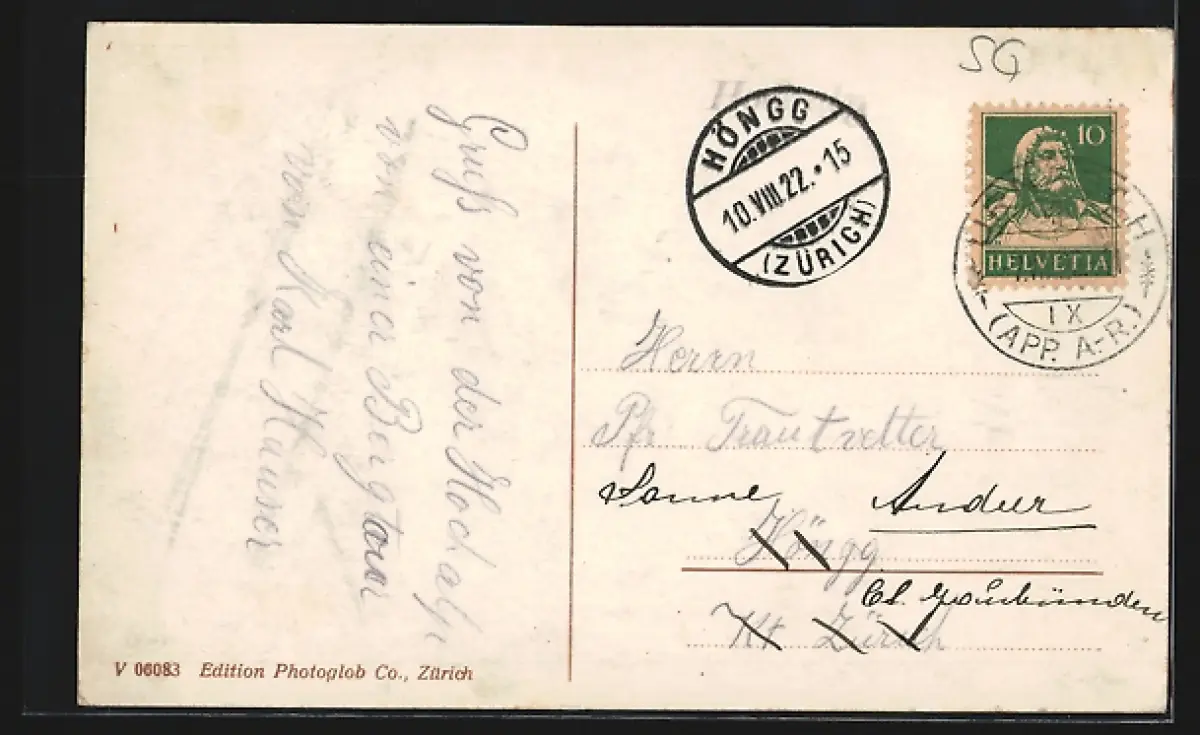 SG
HÖNGG
10.VIII.22.•15
(ZÜRICH)
10
HELVETIA
H
IX
(APP. A.-R.)
Gruß von der Hochalp
von einer Bergtour
von Karl Hauser
Herrn
Pfr Trautvetter
Sonne Andeer
Höngg
Ct. Graubünden
Kt Zürich
V 06083 Edition Photoglob Co., Zürich